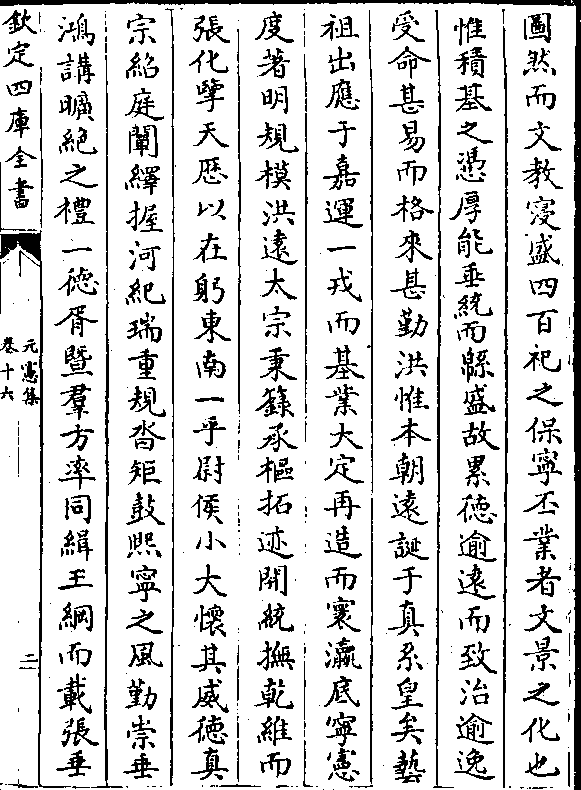 圖然而文教寖盛四百祀之保寧丕業者文景之化也
惟積基之慿厚能垂統而緜盛故累德逾遠而致治逾逸
受命甚易而格來甚勤洪惟本朝遠誕于真系皇矣藝
祖出應于嘉運一戎而基業大定再造而寰瀛底寧憲
度著明規模洪遠太宗秉籙承樞拓迹開統撫乾維而
張化孽天歴以在躬東南一乎尉侯小大懷其威德真
宗紹庭闡繹握河紀瑞重規沓矩鼓熈寧之風勤崇垂
鴻講曠絶之禮一德胥暨羣方率同緝王綱而載張垂
欽定四庫全書
元憲集
卷十六
二